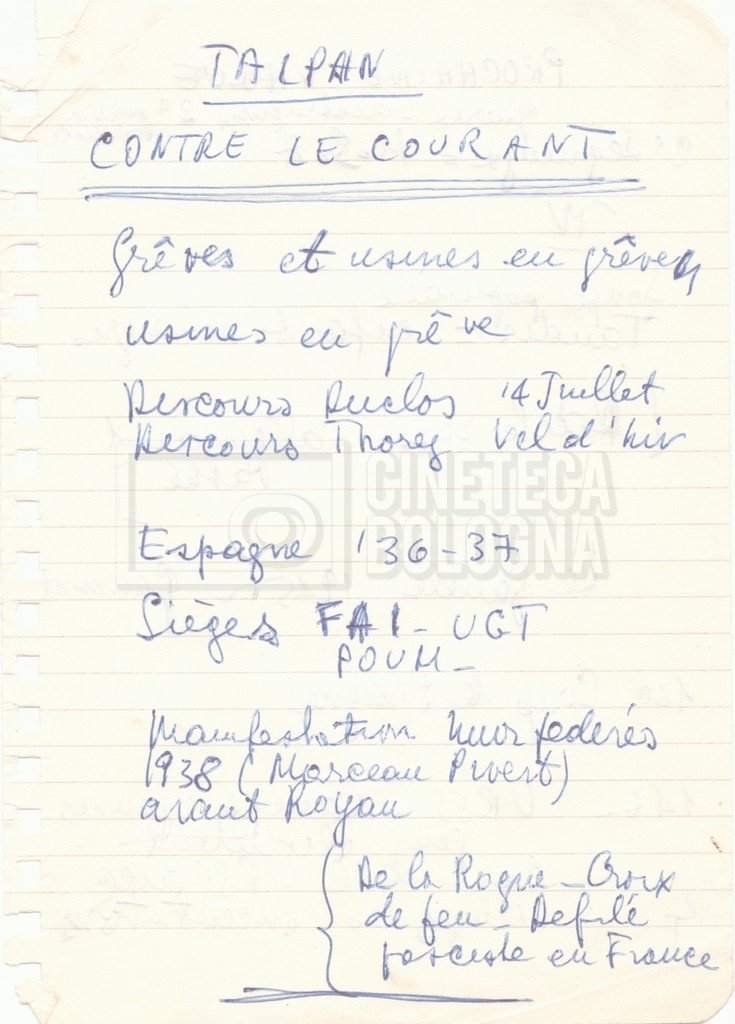 TALPAN
CONTRE LE COURANT
Grèves et usines en grève
usines en grève
Discours Duclos 14 Juillet
Discours Thorez Vel d'hiv
CINETECA
BOLOGNA
Espagne '36-37
Sièges FAI - UGT
POUM -
Manifestation Mur fédérés
1938 (Marceau Pivert)
avant Royan
De la Roque - Croix
de feu - Défilé
fasciste en France